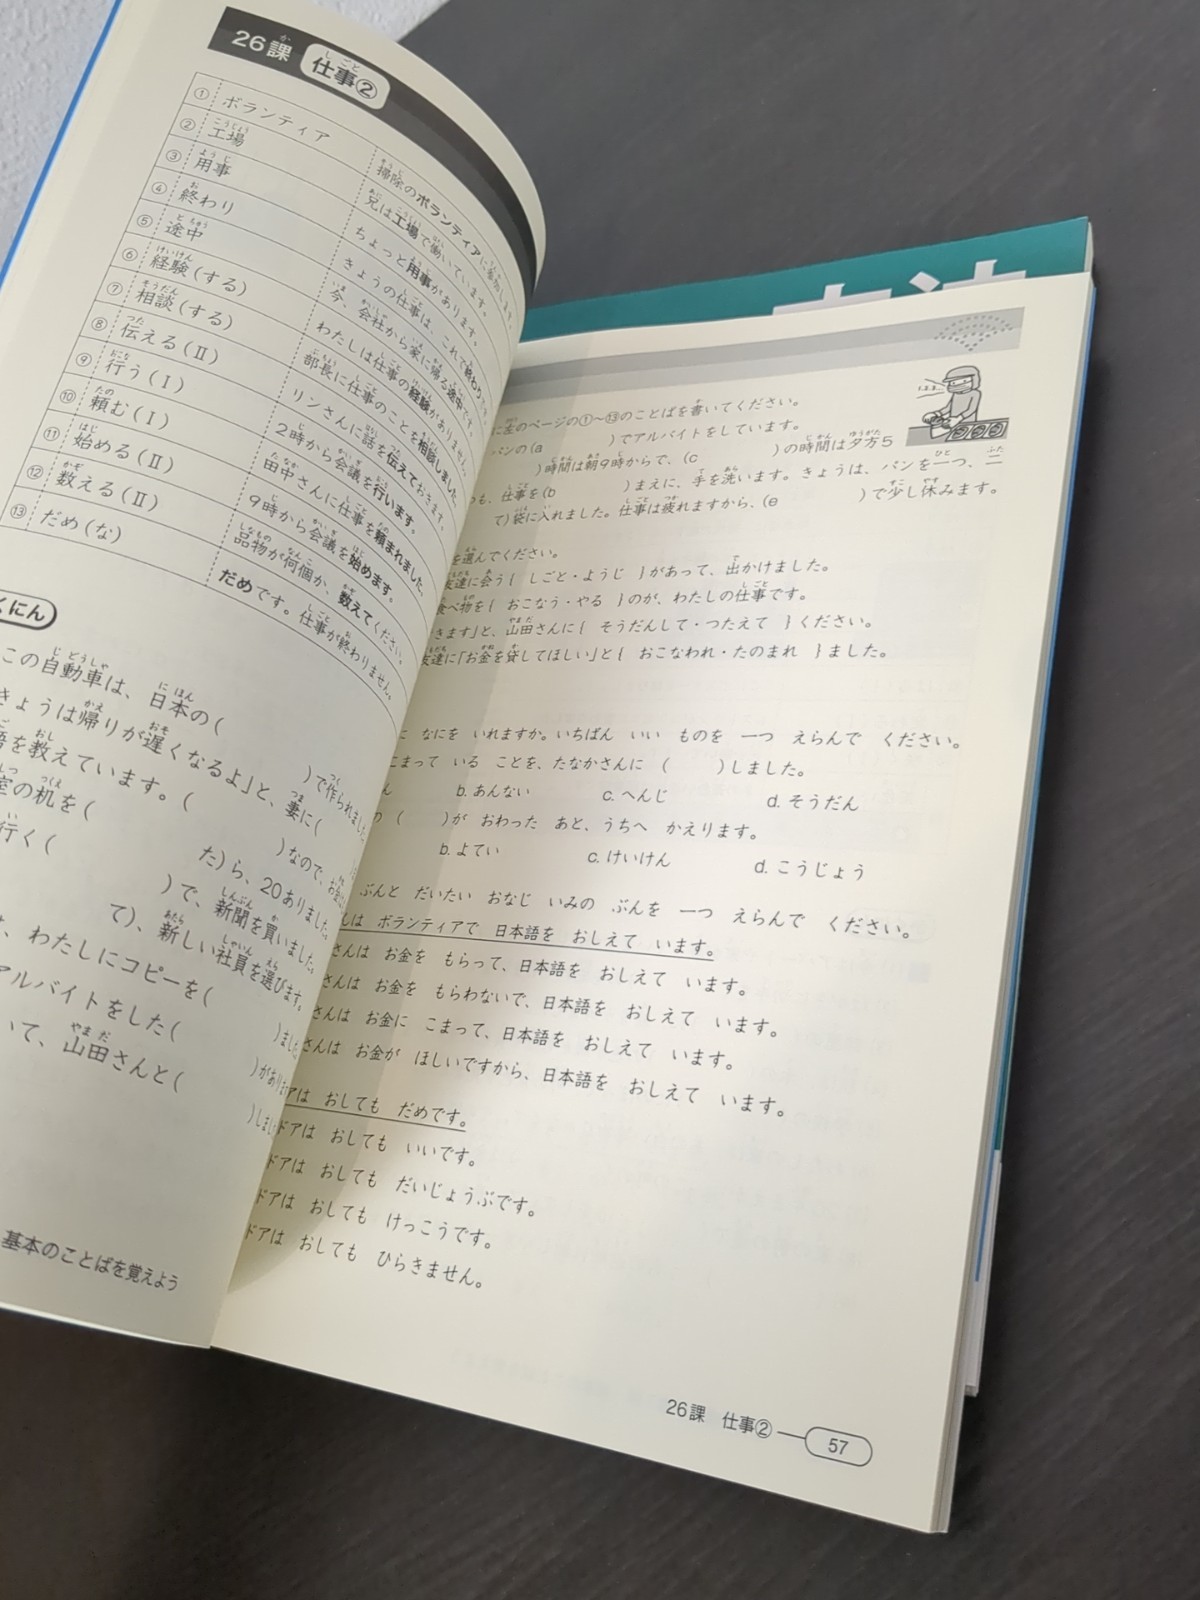 26課 仕事②
① ボランティア 掃除のボランティアに参加します。
② 工場 兄は工場で働いています。
③ 用事 ちょっと用事があります。
④ 終わり きょうの仕事は、これで終わりです。
⑤ 途中 今、会社から家に帰る途中です。
⑥ 経験(する) わたしは仕事の経験がありません。
⑦ 相談(する) 部長に仕事のことを相談しました。
⑧ 伝える(Ⅱ) リンさんに話を伝えておきます。
⑨ 行う(Ⅰ) 2時から会議を行います。
⑩ 頼む(Ⅰ) 田中さんに仕事を頼まれました。
⑪ 始める(Ⅱ) 9時から会議を始めます。
⑫ 数える(Ⅱ) 品物が何個か、数えてください。
⑬ だめ(な) だめです。仕事が終わりません。
くにん
この自動車は、日本の( )で作られました
きょうは帰りが遅くなるよ」と、妻に(
を教えています。( )なので、お金
の机を( た)ら、20ありました。
行く( )で、新聞を買いました。
て)、新しい社員を選びます。
、わたしにコピーを( )ました
アルバイトをした( )があり
いて、山田さんと( )しまし
基本のことばを覚えよう
に左のページの①～⑬のことばを書いてください。
パンの(a )でアルバイトをしています。
)時間は朝9時からで、(c )の時間は夕方5
も、仕事を(b )まえに、手を洗います。きょうは、パンを一つ、二
て)袋に入れました。仕事は疲れますから、(e )で少し休みます。
を選んでください。
友達に会う{ しごと・ようじ }があって、出かけました。
食べ物を{ おこなう・やる }のが、わたしの仕事です。
きます」と、山田さんに{ そうだんして・つたえて }ください。
友達に「お金を貸してほしい」と{ おこなわれ・たのまれ }ました。
に なにを いれますか。いちばん いい ものを 一つ えらんで ください。
こまって いる ことを、たなかさんに ( )しました。
ん b. あんない c. へんじ d. そうだん
の ( )が おわった あと、うちへ かえります。
b. よてい c. けいけん d. こうじょう
ぶんと だいたい おなじ いみの ぶんを 一つ えらんで ください。
んは ボランティアで 日本語を おしえて います。
さんは お金を もらって、日本語を おしえて います。
さんは お金を もらわないで、日本語を おしえて います。
さんは お金に こまって、日本語を おしえて います。
さんは お金が ほしいですから、日本語を おしえて います。
アは おしても だめです。
ドアは おしても いいです。
ドアは おしても だいじょうぶです。
ドアは おしても けっこうです。
ドアは おしても ひらきません。
26課 仕事② 57